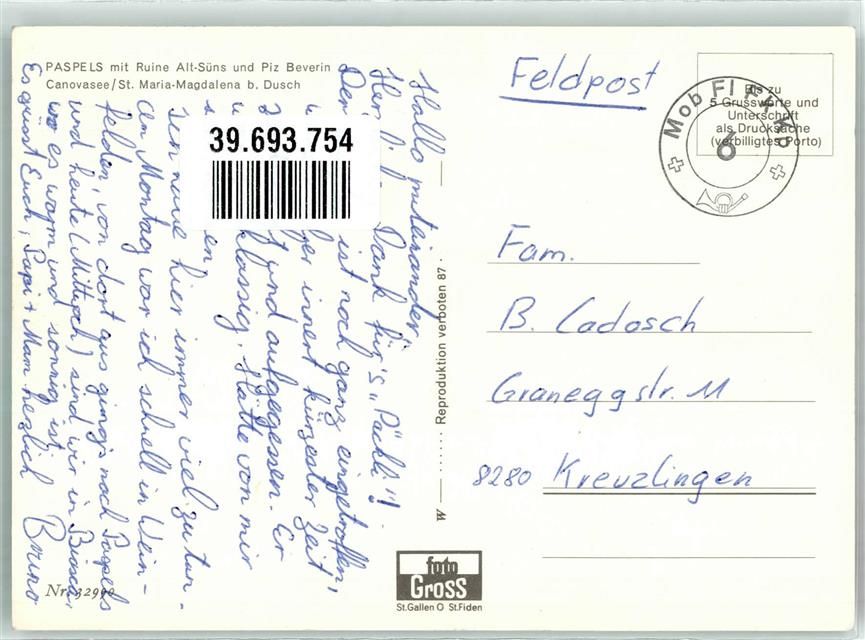 PASPELS mit Ruine Alt-Süns und Piz Beverin
Canovasee/St. Maria-Magdalena b. Dusch
39.693.754
Hallo miteinander,
Dank für's „Päckli"!
Der ist noch ganz eingetroffen,
innert kürzester Zeit
und aufgegessen. Er
klassig. Hätte von mir
en
hier immer viel zu tun.
Am Montag war ich schnell in Wein-
felden, von dort aus ging's nach Paspels
und heute (Mittwoch) sind wir in
wo es warm und sonnig ist.
Es grüsst Euch, Papi + Mam herzlich Bruno
Nr. 32990
W — ······ Reproduktion verboten 87 · —
foto
Gross
St.Gallen O St.Fiden
Feldpost
Bis zu
5 Grussworte und
Unterschrift
als Drucksache
(verbilligtes Porto)
Mob Fl
6
Fam.
B. Cadosch
Graneggstr. 11
8280 Kreuzlingen